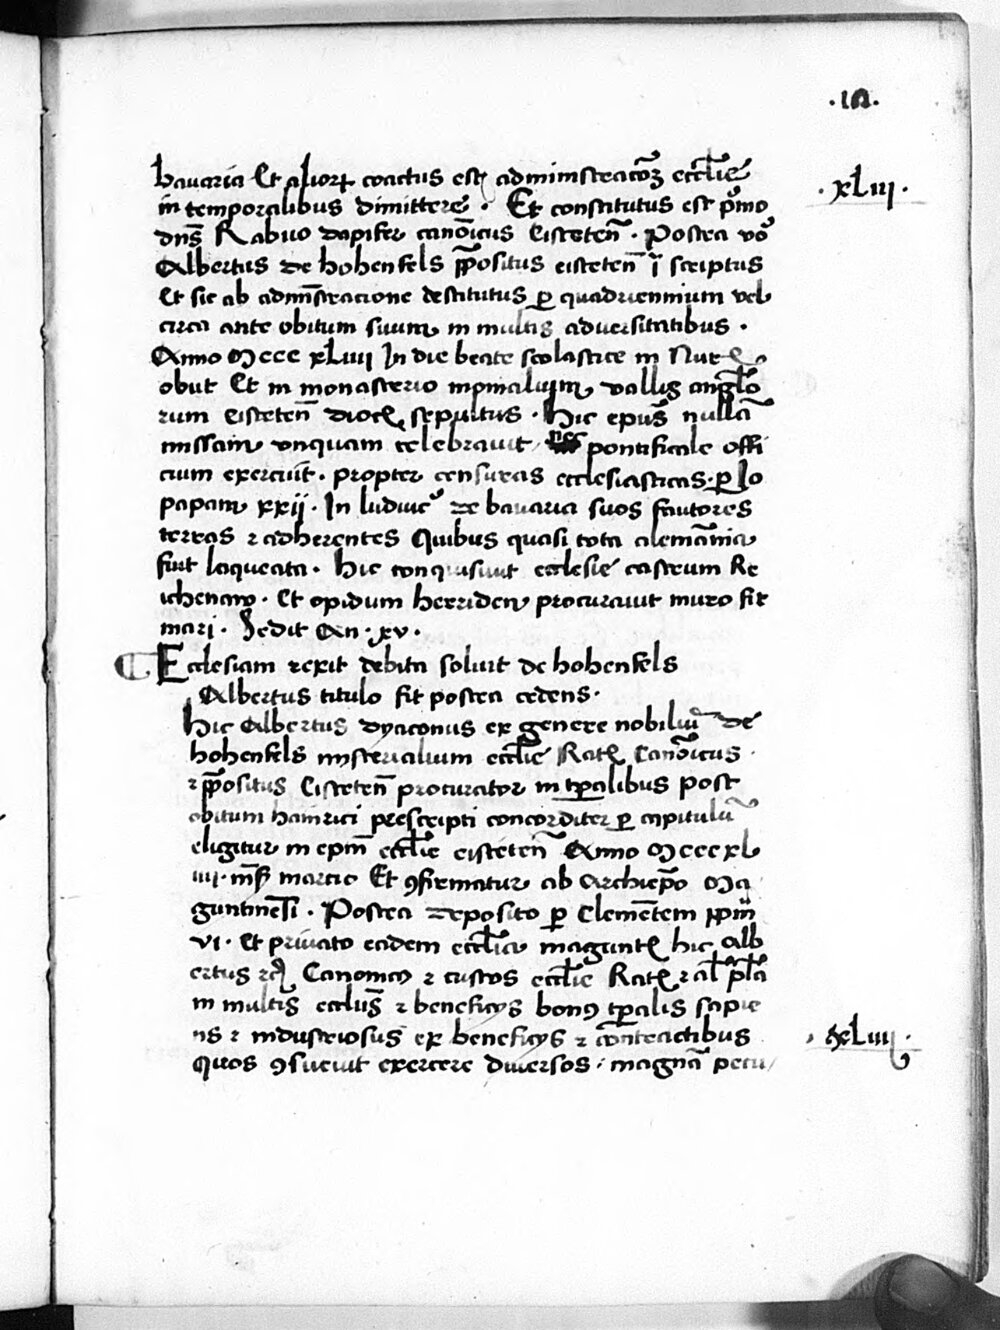 ·ιΛ·
bauaria Et alior̄ coactus est administracōȝ eccl̄ie
·xLiij·
in temporalibus dimittere · Et constitutus est p̊mo
dn̄s Rabno dapifer canōicus Eisteten̄ · Postea vo᷒
Albertus de hohenfels p̄positus eisteten̄ ī scriptus
Et sic ab admīstracione destitutus ꝑ quadriennium vel
circa ante obitum suum in multis aduersitatibus ·
Anno Mccc xLiiij In die beate scolastice in
obijt Et in monasterio monialium vallis angl̄o
rum Eisteten̄ dioc̄ sepultus · Hic ep̄us nullā
missam vnquam celebrauit nec pontificale offi
cium exercuit̄ · propter censuras ecclesiasticas · ꝑ Jo
papam xxij · In ludwic᷒ de bauaria suos fautores
terras ⁊ adherentes Quibus quasi tota alemānia
fuit laqueata · Hic conquisiuit ecclesie castrum Re
ichenaw · Et opidum herriden procurauit muro fir
mari · Sedit An · xv ·
Ecclesiam rexit debita soluit de hohenfels
Albertus titulo fit postea cedens ·
Hic Albertus dyaconus ex genere nobiliū de
hohenfels misterialium eccl̄ie Rat̄ Canōicus ·
⁊ p̄positus Eisteten̄ procurator in tp̄alibus post
obitum hainrici prescripti concorditer ꝑ capitulū
eligitur in ep̄m eccl̄ie eisteten̄ Anno Mcccxl
iiij · mēs̄ marcio Et ꝯfirmatur ab Archiep̄o Ma
guntinen̄si · Postea deposito ꝑ Clemētem p̄p̄m
vi · Et priuato eadem eccl̄ia magunt̄ hic Alb
ertus Canonicus ⁊ custos eccl̄ie Rat̄ ⁊ al̄ p̄l̄a
in multis ecclijs ⁊ beneficijs bonꝯ tp̄alis sapie
ns ⁊ industriosus ex beneficijs ⁊ cōntractibus
·xLiiij·
Quos ꝯsueuit exercere diuersos · magnā pecu